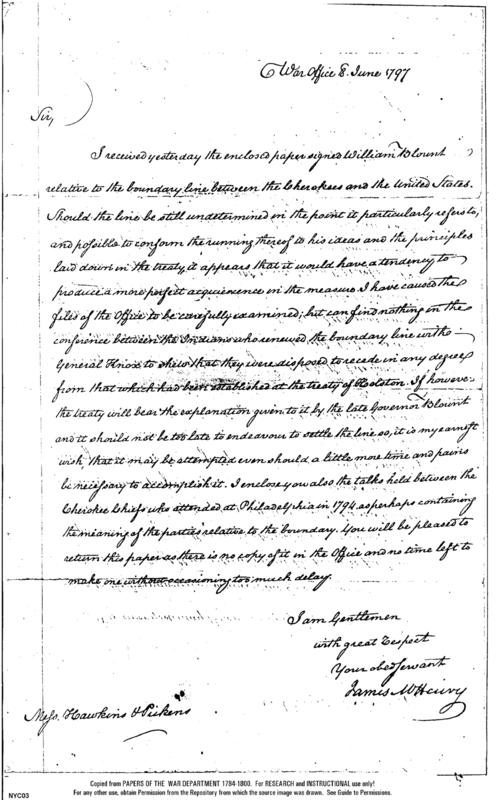 War Office 8. June 1797
Sir,
I received yesterday the enclosed paper signed William Blount
relative to the boundary line between the Cherokees and the United States.
Should the line be still undetermined in the point it particularly refers to,
and possible to conform the running thereof to his ideas and the principles
laid down in the treaty, it appears that it would have a tendency to
produce a more perfect acquiescence in the measure. I have caused the
files of the Office to be carefully examined; but can find nothing in the
conference between the Indians who renewed the boundary line with
General Knox to shew that they were disposed to recede in any degree
from that which had been established at the treaty of Holston. If however
the treaty will bear the explanation given to it by the late Governor Blount
and it should not be too late to endeavour to settle the line so, it is my earnest
wish that it may be attempted even should a little more time and pains
be necessary to accomplish it. I enclose you also the talks held between the
Cherokee Chiefs who attended at Philadelphia in 1794 as perhaps containing
the meaning of the parties relative to the boundary. You will be pleased to
return this paper as there is no copy of it in the Office and no time left to
make one without occasioning too much delay.
I am Gentlemen
with great respect
Your obed servant
James McHenry
Messs. Hawkins & Pickens
Copied from PAPERS OF THE WAR DEPARTMENT 1784-1800. For RESEARCH and INSTRUCTIONAL use only!
For any other use, obtain Permission from the Repository from which the source image was drawn. See Guide to Permissions.
NYC03